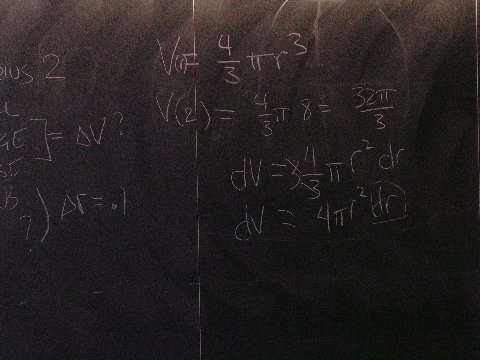 2
GE ] = ΔV?
SE
B
?) Δr = .1
V(r) = 4/3 πr³
V(2) = 4/3 π 8 = 32π/3
dV = 3 4/3 π r² dr
dV = 4πr² dr